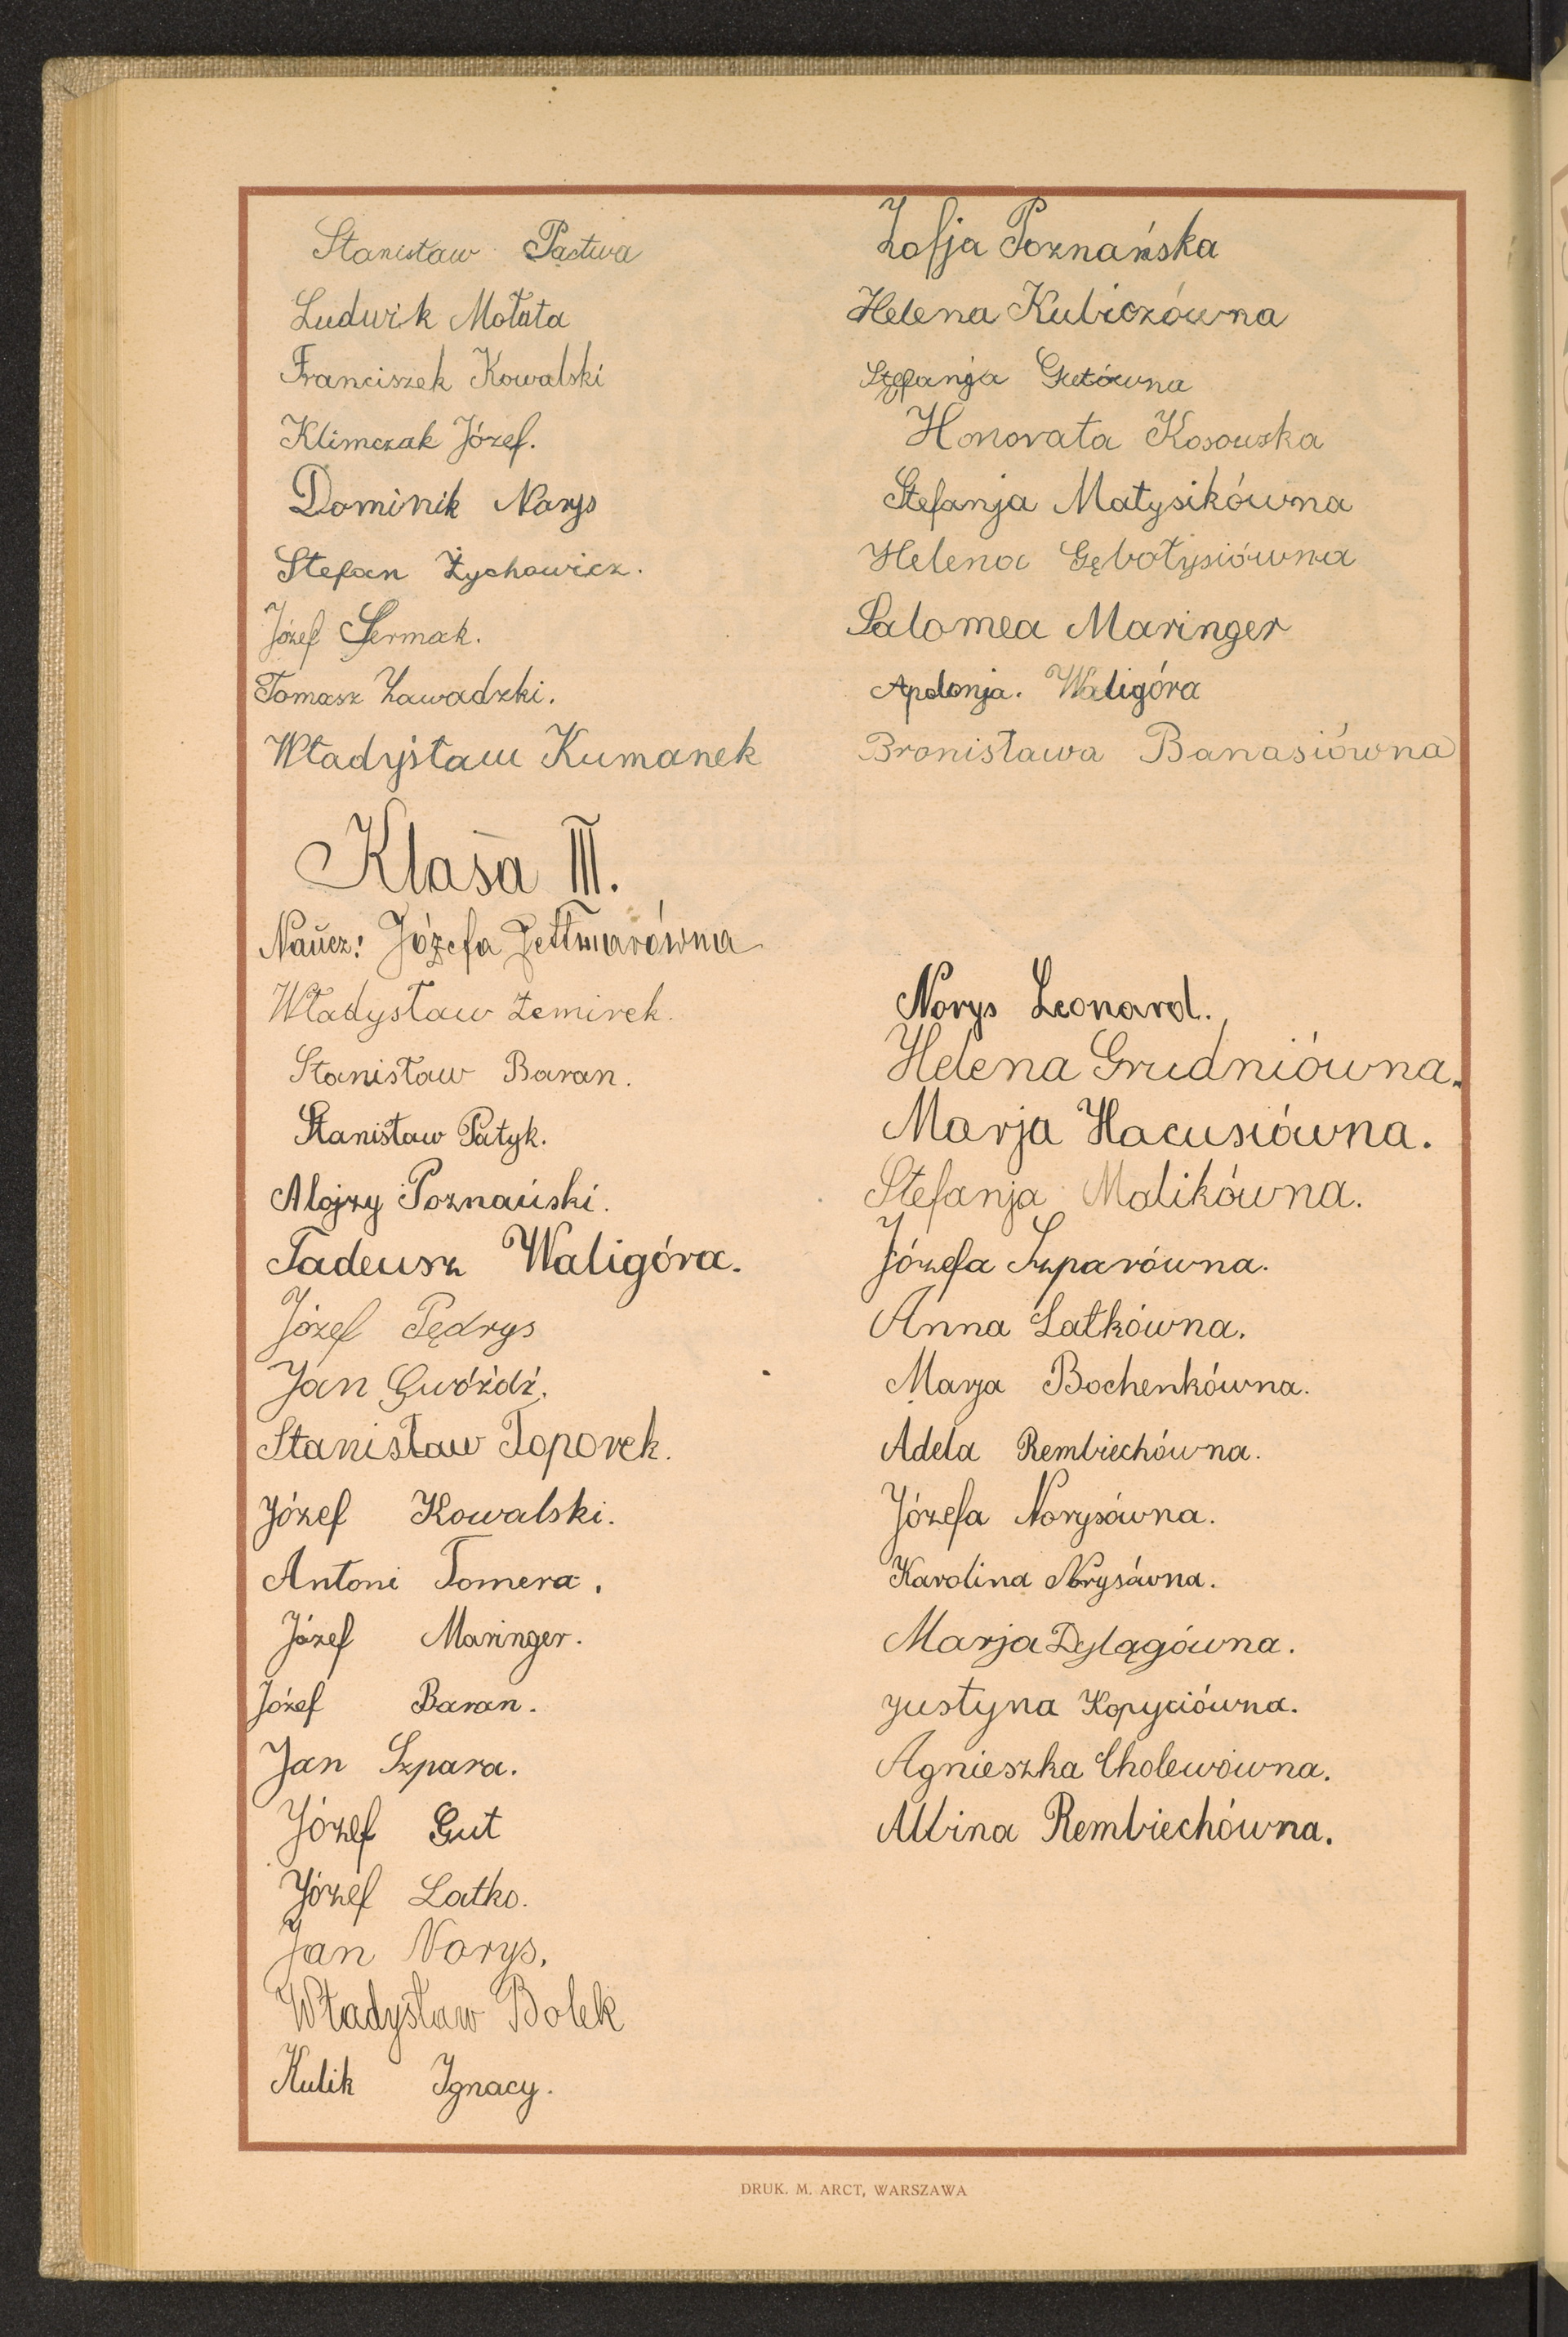 Stanisław Pastwa
Ludwik Mołata
Franciszek Kowalski
Klimczak Józef.
Dominik Norys
Stefan Żychowicz.
Józef Sermak.
Tomasz Zawadzki.
Władysław Kumanek
Zofja Poznańska
Helena Kubiczówna
Stefanja Gutówna
Honorata Kosowska
Stefanja Matysikówna
Helena Gębołysiówna
Salomea Maringer
Apolonja. Waligóra
Bronisława Banasiówna
Klasa III.
Naucz: Józefa
Władysław Żemirek.
Stanisław Baran.
Stanisław Patyk.
Alojzy Poznański.
Tadeusz Waligóra.
Józef Pędrys
Jan Gwóźdź.
Stanisław Toporek.
Józef Kowalski.
Antoni Tomera.
Józef Maringer.
Józef Baran.
Jan Szpara.
Józef Gut
Józef Latko.
Jan Norys.
Władysław Bolek
Kulik Ignacy.
Norys Leonard.
Helena Grudniówna.
Marja Hacusiówna.
Stefanja Malikówna.
Józefa Szparówna.
Anna Latkówna.
Marja Bochenkówna.
Adela Rembiechówna.
Józefa Norysówna.
Karolina Norysówna.
Marja Dylągówna.
Justyna Kopyciówna.
Agnieszka Cholewówna.
Albina Rembiechówna.
DRUK. M. ARCT, WARSZAWA